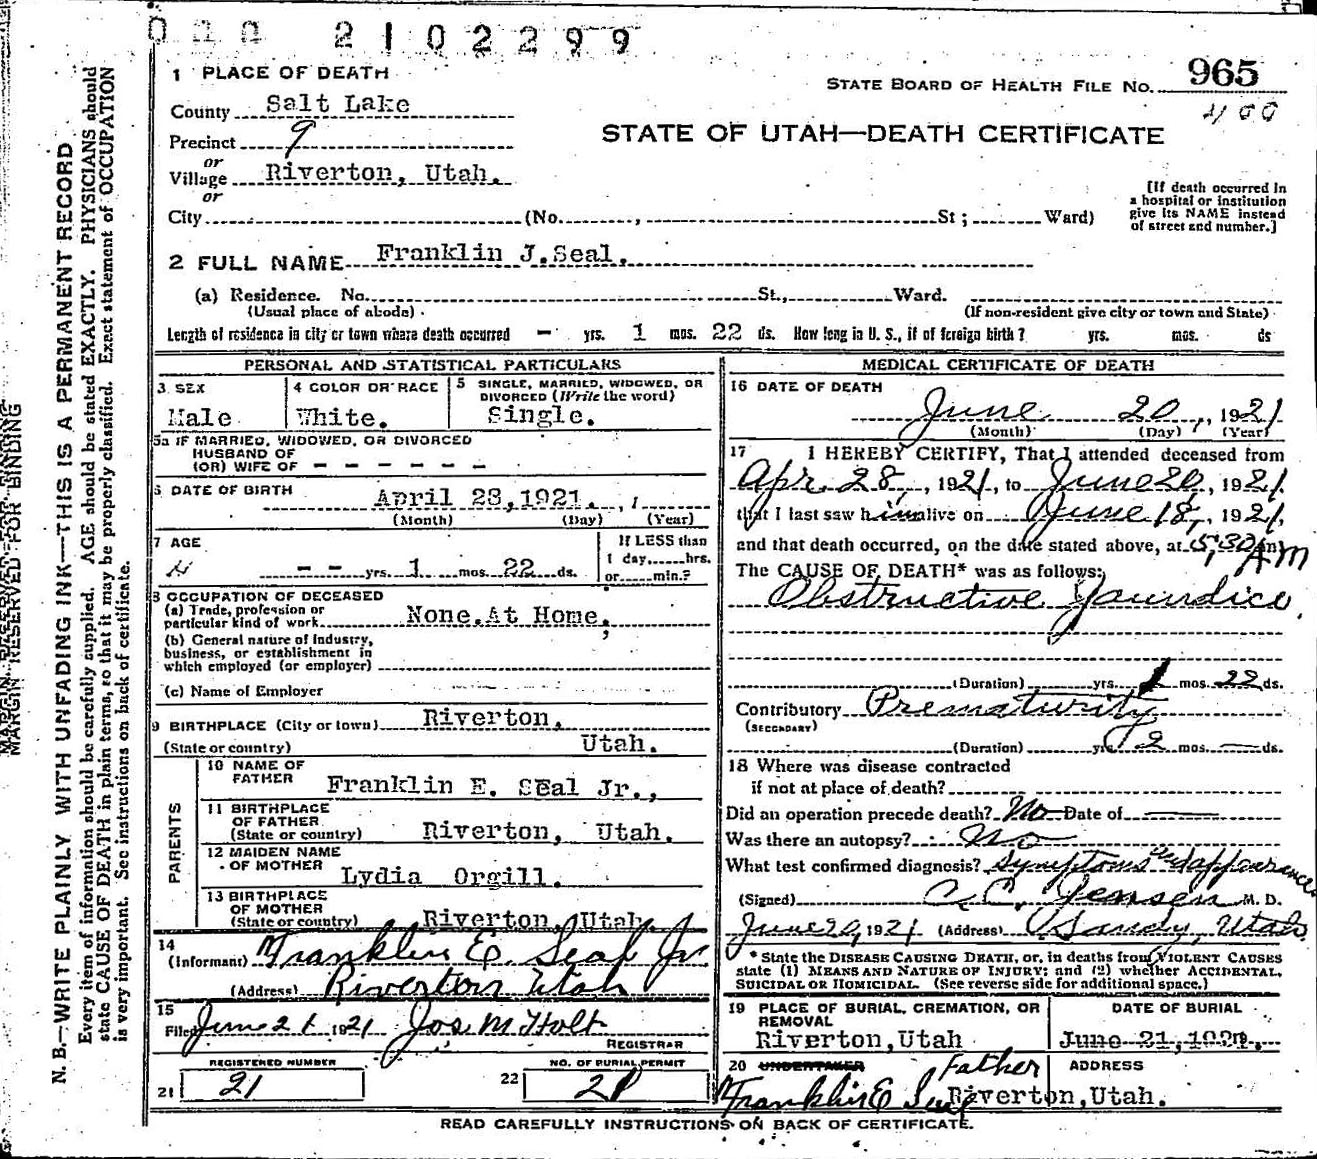 2102299
1 PLACE OF DEATH
STATE BOARD OF HEALTH FILE NO. 965
County Salt Lake
400
Precinct 9
STATE OF UTAH—DEATH CERTIFICATE
or
Village Riverton, Utah.
or
City (No. , St; Ward)
[If death occurred in a hospital or institution give its NAME instead of street and number.]
2 FULL NAME Franklin J. Seal.
(a) Residence. No. St., Ward.
(Usual place of abode) (If non-resident give city or town and State)
Length of residence in city or town where death occurred - yrs. 1 mos. 22 ds. How long in U. S., if of foreign birth? yrs. mos. ds
PERSONAL AND STATISTICAL PARTICULARS
3 SEX
Male
4 COLOR OR RACE
White.
5 SINGLE, MARRIED, WIDOWED, OR DIVORCED (Write the word)
Single.
5a IF MARRIED, WIDOWED, OR DIVORCED
HUSBAND OF
(OR) WIFE OF - - - - - -
6 DATE OF BIRTH
April 28, 1921.
(Month) (Day) (Year)
7 AGE
-- yrs. 1 mos. 22 ds.
If LESS than
1 day......hrs.
or......min.?
8 OCCUPATION OF DECEASED
(a) Trade, profession or
particular kind of work None. At Home.
(b) General nature of industry,
business, or establishment in
which employed (or employer)
(c) Name of Employer
9 BIRTHPLACE (City or town) Riverton,
(State or country) Utah.
PARENTS
10 NAME OF
FATHER Franklin E. Seal Jr.,
11 BIRTHPLACE
OF FATHER
(State or country) Riverton, Utah.
12 MAIDEN NAME
OF MOTHER
Lydia Orgill.
13 BIRTHPLACE
OF MOTHER
(State or country) Riverton, Utah
14
(Informant) Franklin E. Seal Jr
(Address) Riverton Utah
15
Filed June 21 1921 Jos M Holt
REGISTRAR
REGISTERED NUMBER
21 21
NO. OF BURIAL PERMIT
22 21
MEDICAL CERTIFICATE OF DEATH
16 DATE OF DEATH
June 20, 1921
(Month) (Day) (Year)
17 I HEREBY CERTIFY, That I attended deceased from
Apr. 28, 1921, to June 20, 1921.
that I last saw him alive on June 18, 1921,
and that death occurred, on the date stated above, at 5:30 m. AM
The CAUSE OF DEATH* was as follows:
Obstructive Jaundice.
(Duration) yrs. 1 mos. 22 ds.
Contributory Prematurity
(SECONDARY)
(Duration) yrs. 2 mos. — ds.
18 Where was disease contracted
if not at place of death?
Did an operation precede death? No Date of
Was there an autopsy? No
What test confirmed diagnosis? Symptoms and appearances
(Signed) C. Jensen M. D.
June 20, 1921 (Address) Sandy, Utah
* State the DISEASE CAUSING DEATH, or, in deaths from VIOLENT CAUSES
state (1) MEANS AND NATURE OF INJURY; and (2) whether ACCIDENTAL,
SUICIDAL OR HOMICIDAL. (See reverse side for additional space.)
19 PLACE OF BURIAL, CREMATION, OR
REMOVAL
Riverton, Utah
DATE OF BURIAL
June 21, 1921.
20 UNDERTAKER Father
Franklin E Seal
ADDRESS
Riverton, Utah.
READ CAREFULLY INSTRUCTIONS ON BACK OF CERTIFICATE.
MARGIN RESERVED FOR BINDING
N. B.—WRITE PLAINLY WITH UNFADING INK—THIS IS A PERMANENT RECORD
Every item of information should be carefully supplied. AGE should be stated EXACTLY. PHYSICIANS should
state CAUSE OF DEATH in plain terms, so that it may be properly classified. Exact statement of OCCUPATION
is very important. See instructions on back of certificate.